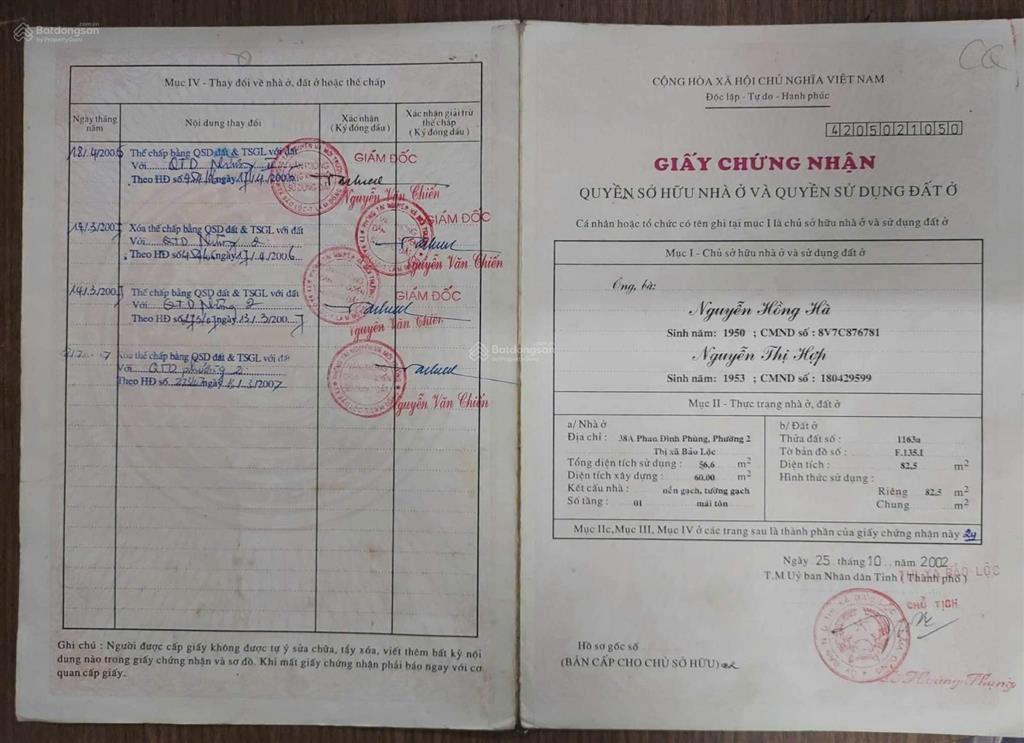 Batdongsan
by PropertyGuru
Mục IV - Thay đổi về nhà ở, đất ở hoặc thế chấp
Ngày tháng năm
Nội dung thay đổi
Xác nhận (Ký đóng dấu)
Xác nhận giải trừ thế chấp (Ký đóng dấu)
18/4/2006 Thế chấp bằng QSD đất & TSGL với đất
Với QTD Phường 2
Theo HĐ số ngày 17/4/2006
GIÁM ĐỐC
Nguyễn Văn Chiến
14/3/2007 Xóa thế chấp bằng QSD đất & TSGL với đất
Với QTD Phường 2
Theo HĐ số ngày 17/4/2006
GIÁM ĐỐC
Nguyễn Văn Chiến
14/3/2007 Thế chấp bằng QSD đất & TSGL với đất
Với QTD Phường 2
Theo HĐ số ngày 13/3/2007
GIÁM ĐỐC
Nguyễn Văn Chiến
Xóa thế chấp bằng QSD đất & TSGL với đất
Với QTD phường 2
Theo HĐ số ngày 13/3/2007
Nguyễn Văn Chiến
Ghi chú : Người được cấp giấy không được tự ý sửa chữa, tẩy xóa, viết thêm bất kỳ nội
dung nào trong giấy chứng nhận và sơ đồ. Khi mất giấy chứng nhận phải báo ngay với cơ
quan cấp giấy.
CQ
CỘNG HÒA XÃ HỘI CHỦ NGHĨA VIỆT NAM
Độc lập - Tự do - Hạnh phúc
4205021050
GIẤY CHỨNG NHẬN
QUYỀN SỞ HỮU NHÀ Ở VÀ QUYỀN SỬ DỤNG ĐẤT Ở
Cá nhân hoặc tổ chức có tên ghi tại mục I là chủ sở hữu nhà ở và sử dụng đất ở
Mục I - Chủ sở hữu nhà ở và sử dụng đất ở
Ông, bà:
Nguyễn Hồng Hà
Sinh năm: 1950 ; CMND số : 8V7C876781
Nguyễn Thị Hợp
Sinh năm: 1953 ; CMND số : 180429599
Mục II - Thực trạng nhà ở, đất ở
a/ Nhà ở
Địa chỉ : 38A Phan Đình Phùng, Phường 2
Thị xã Bảo Lộc
Tổng diện tích sử dụng : 56,6 m2
Diện tích xây dựng : 60.00 m2
Kết cấu nhà : nền gạch, tường gạch
Số tầng : 01 mái tôn
b/ Đất ở
Thửa đất số : 1163a
Tờ bản đồ số : F.135.I
Diện tích : 82.5 m2
Hình thức sử dụng :
Riêng 82.5 m2
Chung m2
Mục IIc, Mục III, Mục IV ở các trang sau là thành phần của giấy chứng nhận này
Ngày 25 tháng 10 năm 2002
T.M Uỷ ban Nhân dân Tỉnh (Thành phố)
THỊ XÃ BẢO LỘC
CHỦ TỊCH
Hồ sơ gốc số
(BẢN CẤP CHO CHỦ SỞ HỮU)
Hoàng Thụng
Batdongsan
by PropertyGuru
Batdongsan
by PropertyGuru